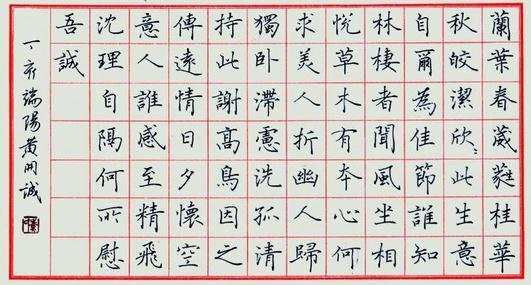 蘭葉春葳蕤桂華
秋皎潔欣〻此生意
自爾為佳節誰知
林棲者聞風坐相
悅草木有本心何
求美人折幽人歸
獨卧滯慮洗孤清
持此謝高鳥因之
傳遠情日夕懷空
意人誰感至精飛
沈理自隔何所慰
吾誠
丁亥端陽黄誠